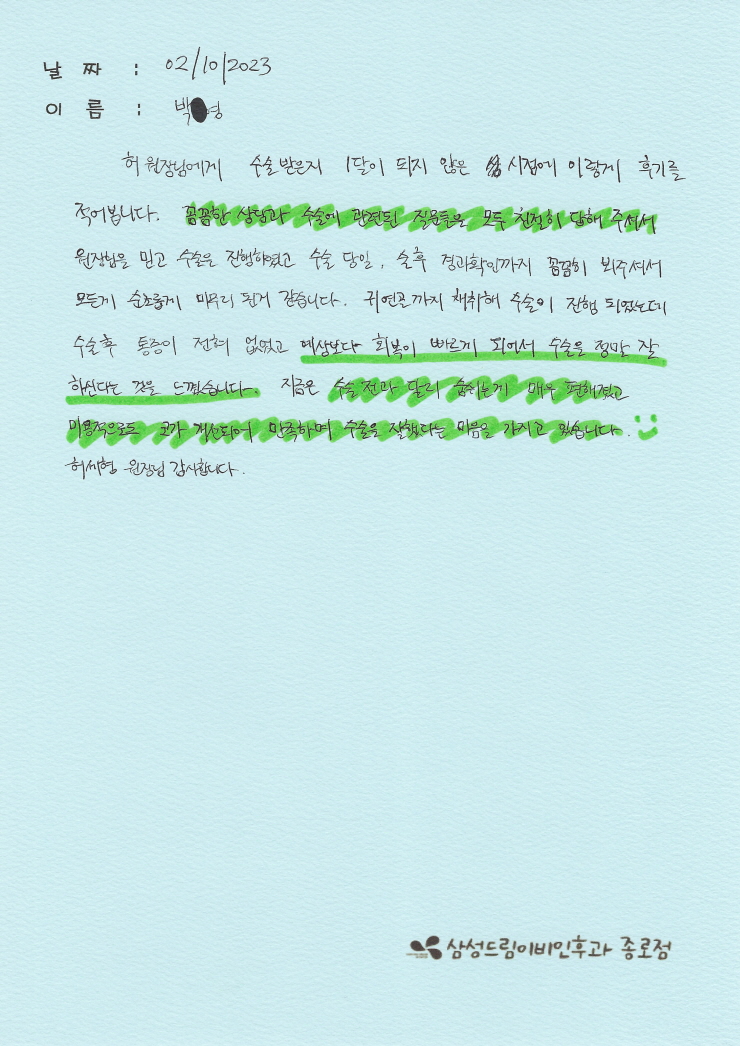 날 짜 : 02/10/2023
이 름 : 백 영
허 원장님에게 수술받은지 1달이 되지 않은 시점에 이렇게 후기를
적어봅니다. 꼼꼼한 상담과 수술에 관련된 질문들은 모두 친절히 답해 주셔서
원장님을 믿고 수술을 진행하였고 수술 당일, 술후 경과확인까지 꼼꼼히 봐주셔서
모든게 순조롭게 마무리 된거 같습니다. 귀연골까지 채취해 수술이 진행 되었는데
수술후 통증이 전혀 없었고 예상보다 회복이 빠르게 되어서 수술을 정말 잘
하신다는 것을 느꼈습니다. 지금은 수술전과 달리 숨쉬는게 매우 편해졌고
미용적으로도 코가 개선되어 만족하며 수술을 잘했다는 마음을 가지고 있습니다.
허세형 원장님 감사합니다.
삼성드림이비인후과 종로점